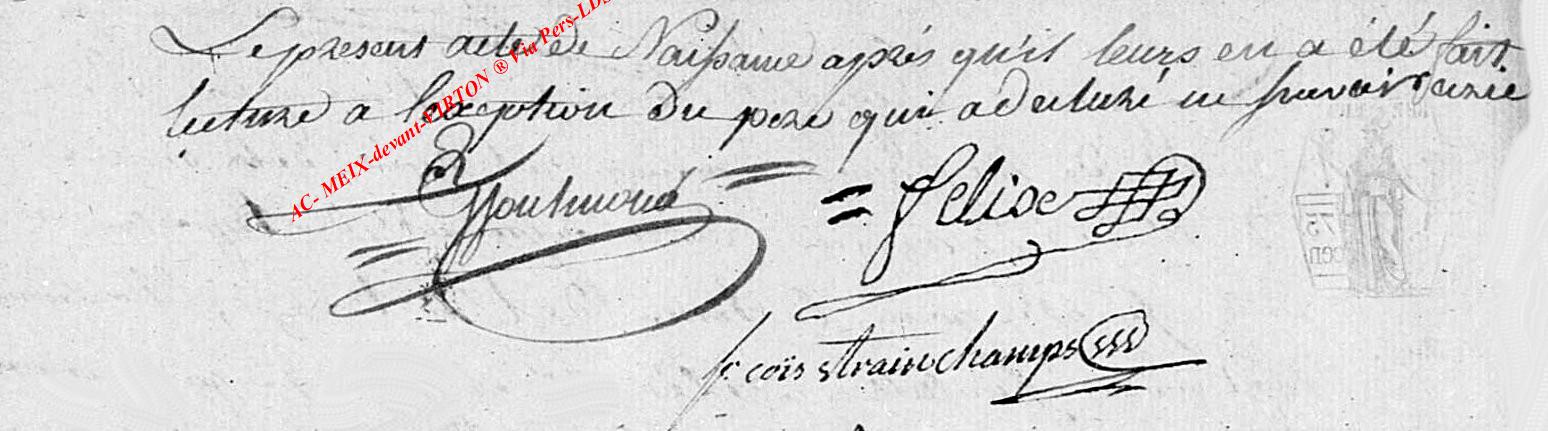 Le present acte de Naissance après qu'il leurs en a été fait
lecture a l'exception du pere qui a declaré ne scavoir ecrire
AC- MEIX-devant-VIRTON ® Via Pers-LDS
felixe
fçois strainchamps